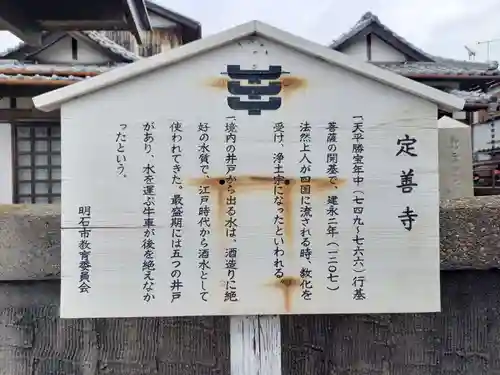 定善寺
一、天平勝宝年中（七四九～七六六）行基
菩薩の開基で、建永二年（一二〇七）
法然上人が四国に流される時、教化を
受け、浄土宗になったといわれる。
一、境内の井戸から出る水は、酒造りに絶
好の水質で、江戸時代から酒水として
使われてきた。最盛期には五つの井戸
があり、水を運ぶ牛車が後を絶えなか
ったという。
明石市教育委員会